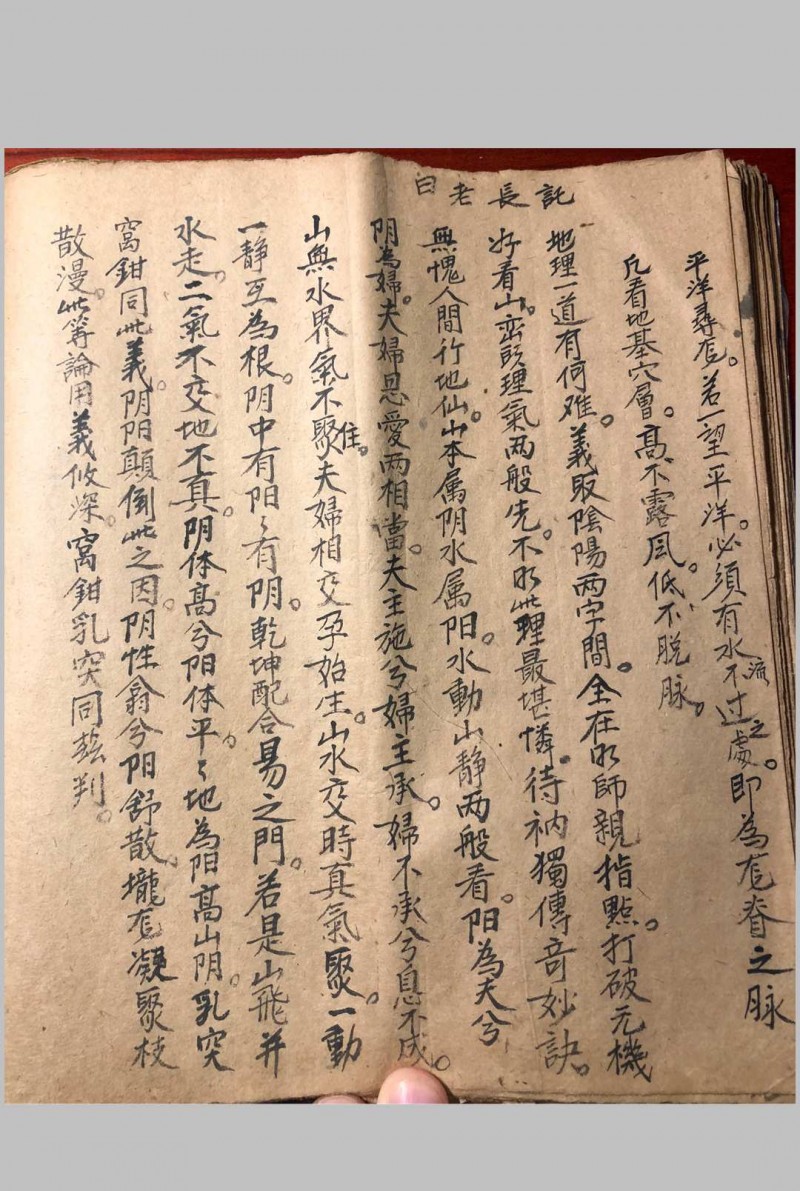 平洋尋龙。若一望平洋。必須有水流不过之處。即為龙脊之脉
凡看地基穴層。高不露风。低不脱脉。
託長老曰
地理一道有何难。義取陰陽两字間。全在明師親指點。打破元機
好看山。峦頭理氣两般先。不明此理最堪憐。待衲獨傳奇妙訣。
無愧人間行地仙。山本属阴水属阳。水動山静两般看。阳為夫兮
阴為婦。夫婦恩愛两相當。夫主施兮婦主承。婦不承兮息不成。
山無水界氣不聚住。夫婦相交孕始生。山水交時真氣聚。一動
一静互為根。阴中有阳〻有阴。乾坤配合易之門。若是山飛并
水走。二氣不交地不真。阴体高兮阳体平。〻地為阳高山阴。乳突
窩鉗同此義。阴阳顛倒此之因。阴性翕兮阳舒散。壠龙凝聚枝
散漫。此等論用義攸深。窩鉗乳突同兹判。